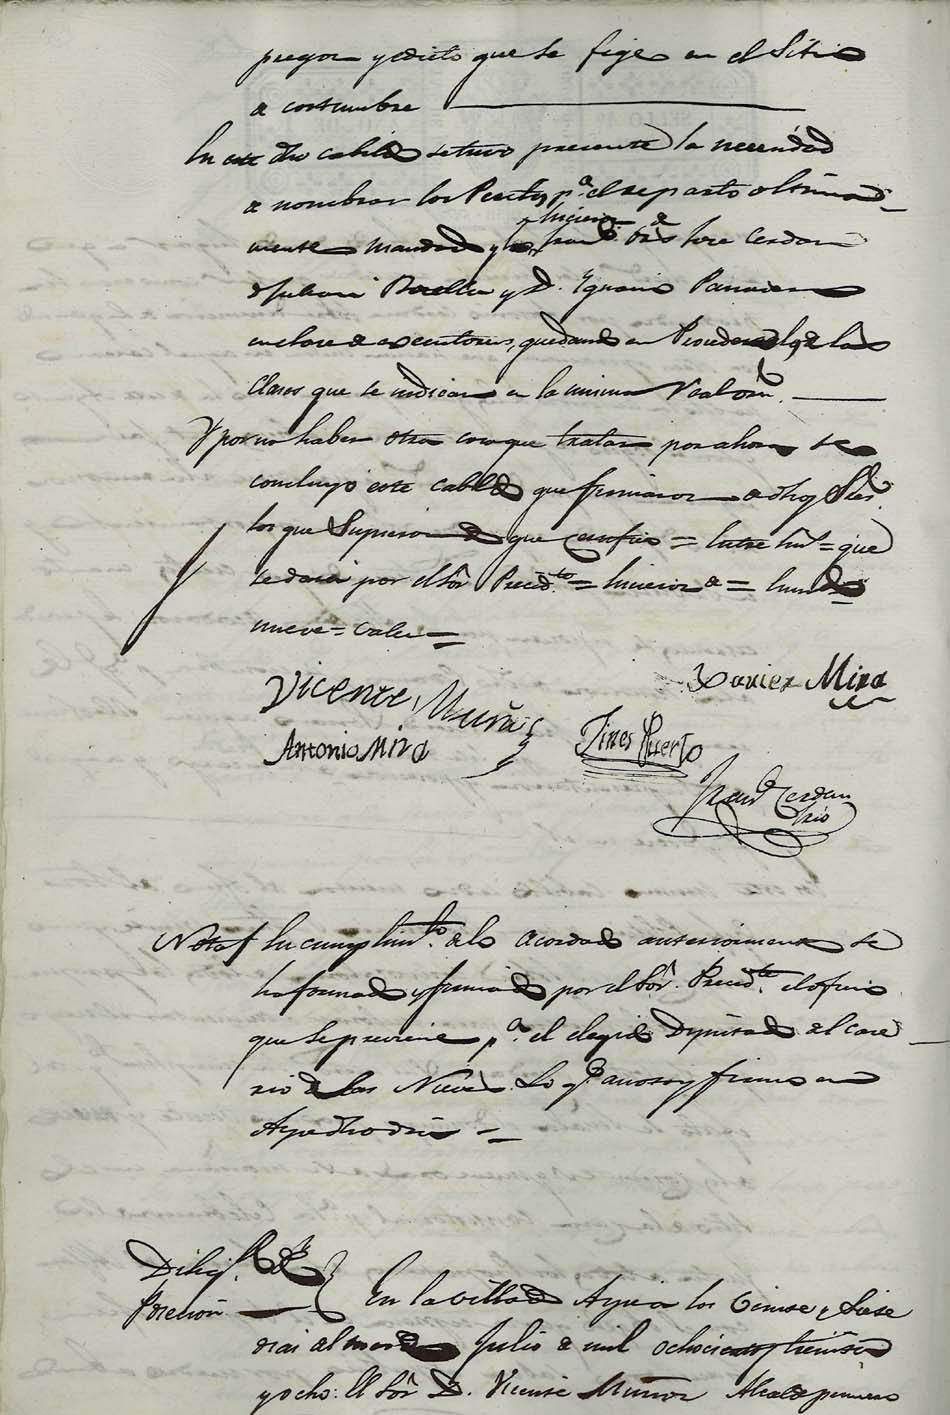 pregon y edicto que se fige en el Sitio
a costumbre
En este dho cabildo se tuvo presente la necesidad
a nombrar los Peritos pª. el reparto ultima-
mente mandado y hicieron de Jose Cerdan
y Dn. Ygnacio
en clase de executores, quedando en de las
Clases que se indican en la misma
Y por no haber otra cosa que tratar por ahora se
concluyo este cabildo que firmaron dhos Sres.
los que Supieron de que Certifico = Entre lins. = que
se dara por el Sor. Presidte. = hicieron a =
nueve = Valen =
Vicente Muñoz
Xavier Mira
Antonio Mira
Gines Puerto
Franco. Cerdan
Srio
Nota En cumplimto. de lo Acordado anteriormente se
ha formado y firmado por el Sor. Presidte. el oficio
que se previene pª. el elegido Diputado del case-
rio de las Nieves. Lo qe. anoto y firmo en
Aype dho dia =
Diliga. de
Posecion
En la villa de Aype a los Veinte y Siete
dias del mes de Julio de mil ochocientos treinta
y ocho: El Sor. D. Vicente Muñoz Alcalde primero